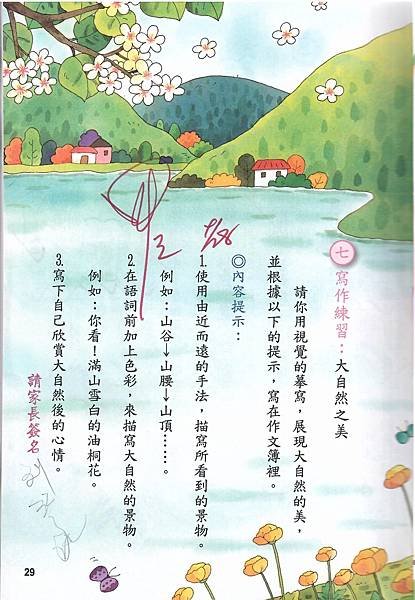 七 寫作練習：大自然之美
請你用視覺的摹寫，展現大自然的美，
並根據以下的提示，寫在作文簿裡。
◎內容提示：
1.使用由近而遠的手法，描寫所看到的景物。
例如：山谷→山腰→山頂……。
2.在語詞前加上色彩，來描寫大自然的景物。
例如：你看！滿山雪白的油桐花。
3.寫下自己欣賞大自然後的心情。
請家長簽名
29